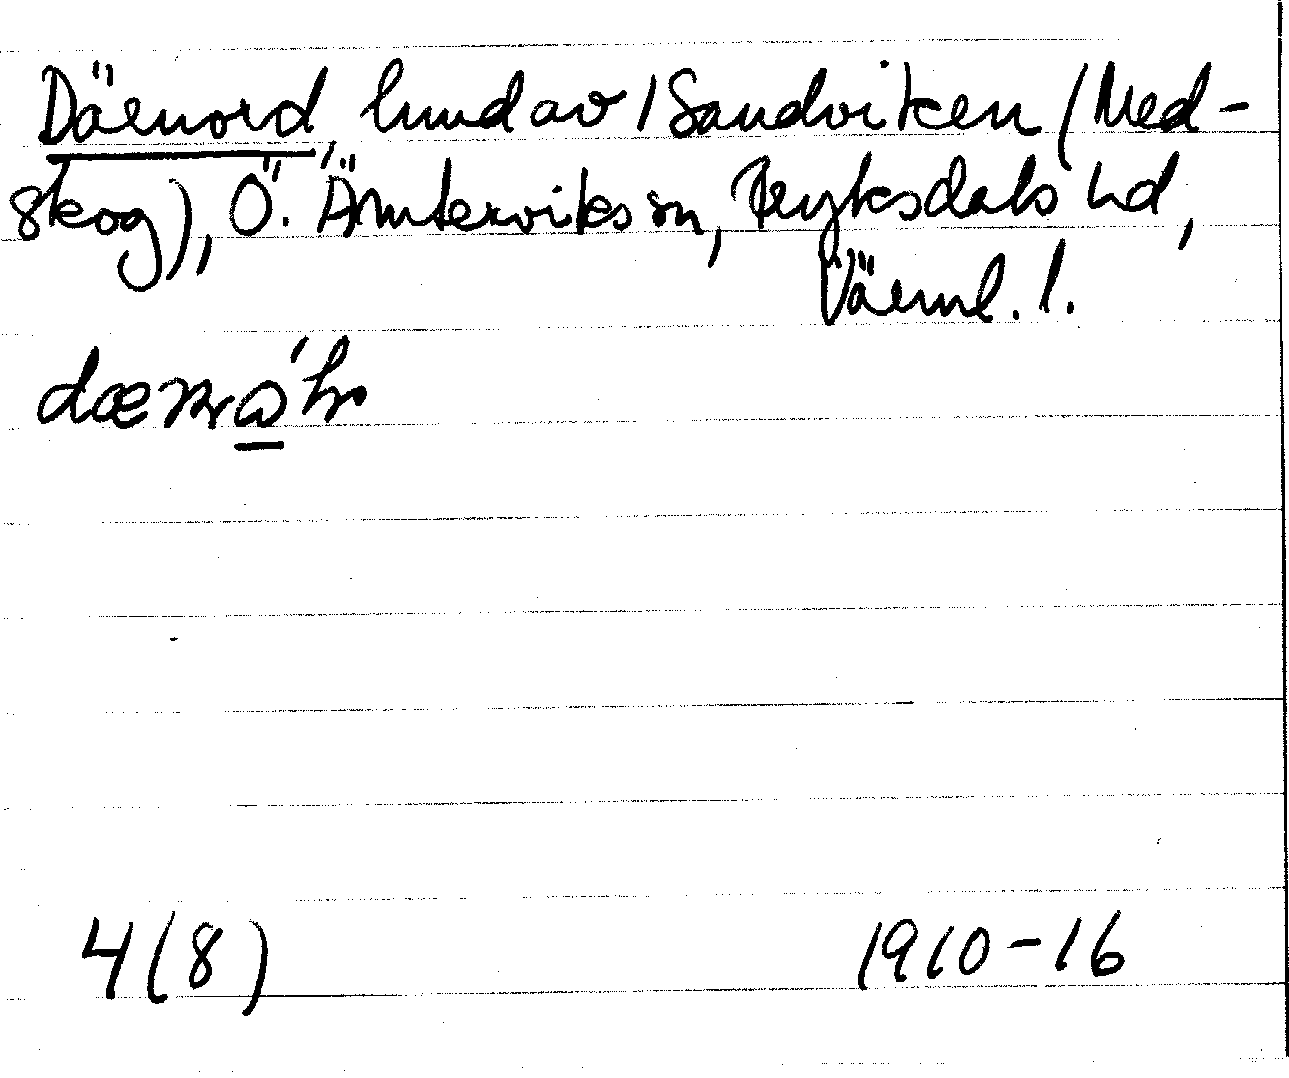 Därnord, hmd av / Sandviken (Med-
skog), Ö. Ämterviks sn, Fryksdals hd,
Värml. l.
4(8) 1910-16